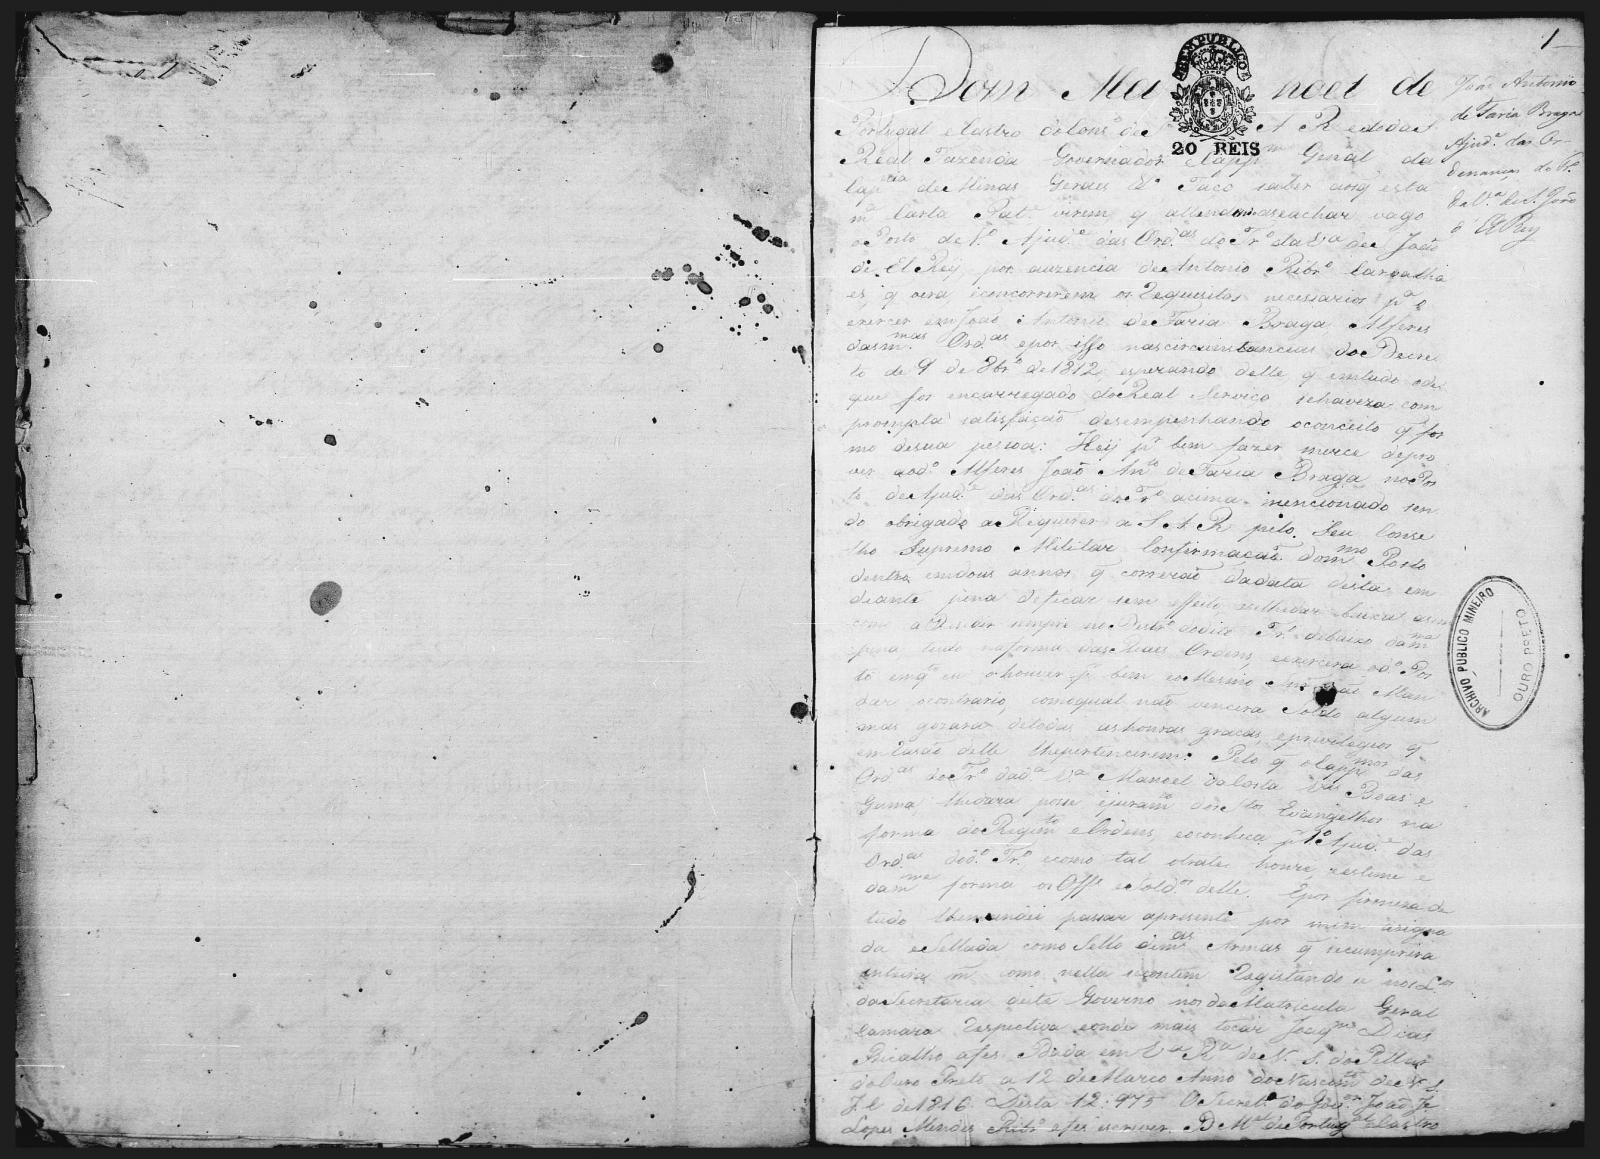 1
Dom Manoel de
Portugal eCastro doCons.º de S. A R edodaS
Real Fazenda Governador eCapp.m General da
Cap.nia deMinas Geraes Ett.ª Faço saber aosq esta
m.ª Carta Pat.e virem, q attendendo aseachar vago
oPosto de 1.º Ajud.e das Ord.as do Tr.º da V.ª de S. João
de El Rey, por auzencia deAntonio Ribr.º Carvalha
es, q era econcorrerem os Requesitos necessarios p.ª o
exercer em João Antonio deFaria Braga Alferes
dasm.mas Ord.as epor isso nas circunstancias do Decre
to de 9 de 8br.º de 1812, esperando delle q emtudo ode
que for encarregado doReal Serviço sehaverá com
prompta satisfação desempenhando oconceito q for
mo desua pessoa: Hey p.r bem fazer merce depro
ver aod.º Alferes João An.to deFaria Braga noPos
to deAjud.e das Ord.as do Tr.º acima mencionado sen
do obrigado aRequerer a S A R pelo Seu Conse
lho Supremo Militar Confirmação dom.mo Posto
dentro emdous annos q correrão dadata desta em
deante pena deficar sem effeito, eselhedar baixa assim
como aRezidir sempre no Destr.º dodito Tr.º debaixo dam.ma
pena, tudo naforma dasReaes Ordens, eexercerá od.º Pos
to emq.to eu ohouver p.r bem eoMesmo Snr. não Man
dar ocontrario, comoqual não vencera Soldo algum
mas gozará detodas ashonras graças, eprivilegios q
emrazão delle lhepertencerem: Pelo q oCapp.m mor das
Ord.as do Tr.º dad.ª V.ª Manoel daCosta Vas Boas e
Gama, lhedará posse ejuram.to dos S.tos Evangelhos na
forma doRegim.to eOrdens, eoconheça p.r 1.º Ajud.e das
Ord.as dod.º Tr.º ecomo tal otrate, honre, eestime e
dam.ma forma os Off.s eSold.os delle. Epor firmeza de
tudo lhemandei passar apresente por mim asigna
da eSellada como Sello dem.as Armas q secumprirá
inteiram.te como nella secontem Registando se nosL.os
daSecretaria deste Governo nos daMatricula Geral
Camara respectiva eonde mais tocar Joaq.m Dias
Bicalho afes Dada em V.ª R.ª de N. S. doPillar
doOuro Preto a 12 deMarço Anno doNascim.to de N. S.
J. C de 1816 Desta 12:975 OSecret.º do Gov.er João Je
Lopes Mendes Ribr.º afes escrever. D M.el dePortug.al eCastro
João Antonio
de Faria Braga
Ajud.e das Or
denanças do Tr.º
da V.ª de S. João
d' El Rey
BEM PUBLICO
20 REIS
ARCHIVO PUBLICO MINEIRO
OURO PRETO